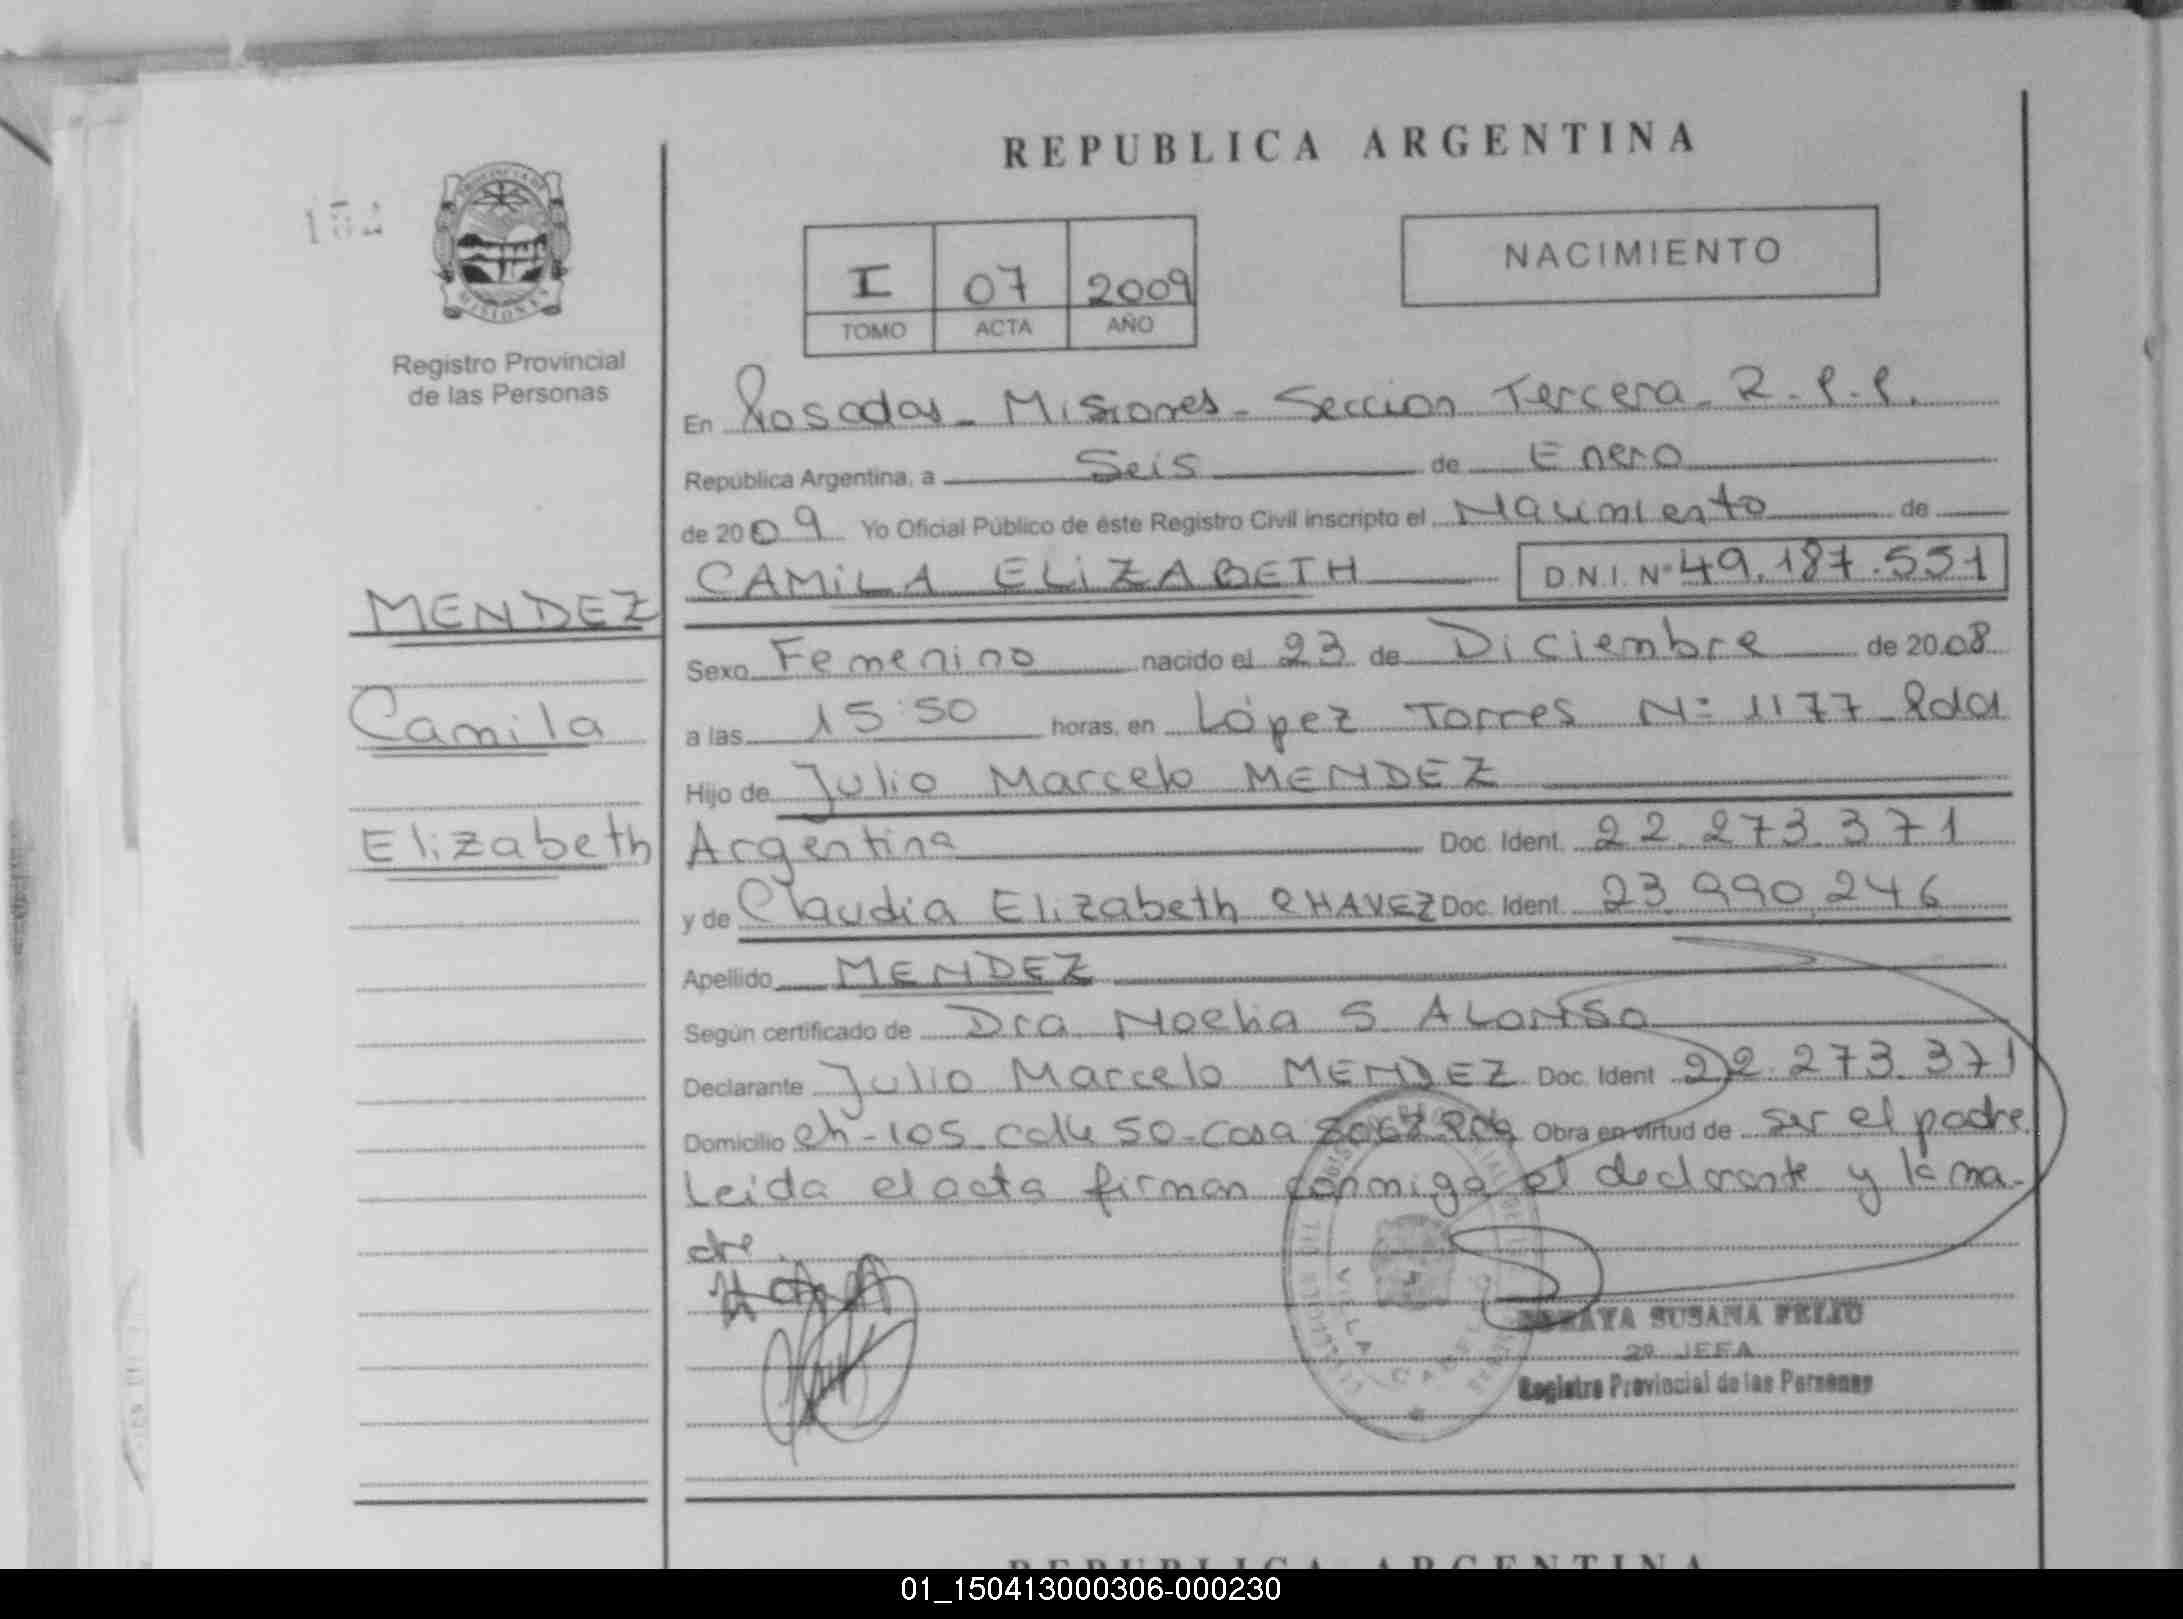 REPUBLICA ARGENTINA
PROVINCIA DE
MISIONES
Registro Provincial
de las Personas
NACIMIENTO
I 07 2009
TOMO ACTA AÑO
En Posadas - Misiones - Seccion Tercera - R.P.P.
República Argentina, a Seis de Enero
de 2009 Yo Oficial Público de éste Registro Civil inscripto el Nacimiento de
CAMILA ELIZABETH D.N.I. Nº 49.187.551
MENDEZ
Camila
Elizabeth
Sexo Femenino nacido el 23 de Diciembre de 2008
a las 15:50 horas, en López Torres Nº 1177 Pdas
Hijo de Julio Marcelo MENDEZ
Argentina Doc. Ident. 22.273.371
y de Claudia Elizabeth CHAVEZ Doc. Ident. 23.990.246
Apellido MENDEZ
Según certificado de Dra Noelia S. ALONSO
Declarante Julio Marcelo MENDEZ Doc. Ident 22.273.371
Domicilio ch-105 calle 50-casa Obra en virtud de ser el padre.
Leida el acta firman conmigo el declarante y la ma-
dre.
VILLA CABELLO
SUSANA FEIJO
2º JEFA
Registro Provincial de las Personas
REPUBLICA ARGENTINA
01_150413000306-000230